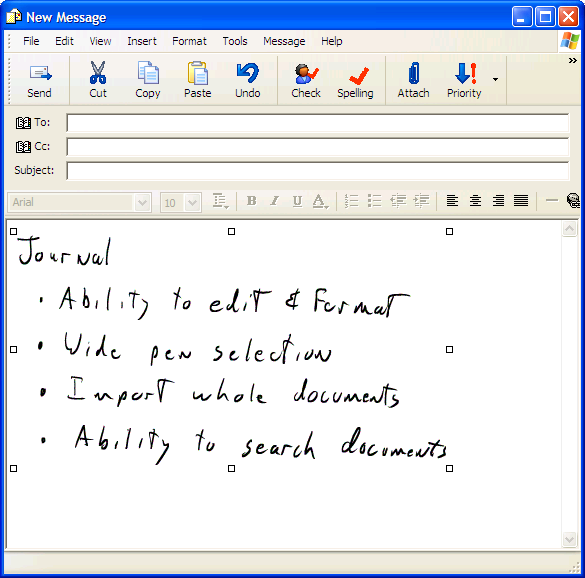 New Message
File Edit View Insert Format Tools Message Help
Send Cut Copy Paste Undo Check Spelling Attach Priority »
To:
Cc:
Subject:
Arial 10 B I U A
Journal
• Ability to edit & Format
• Wide pen selection
• Import whole documents
• Ability to search documents